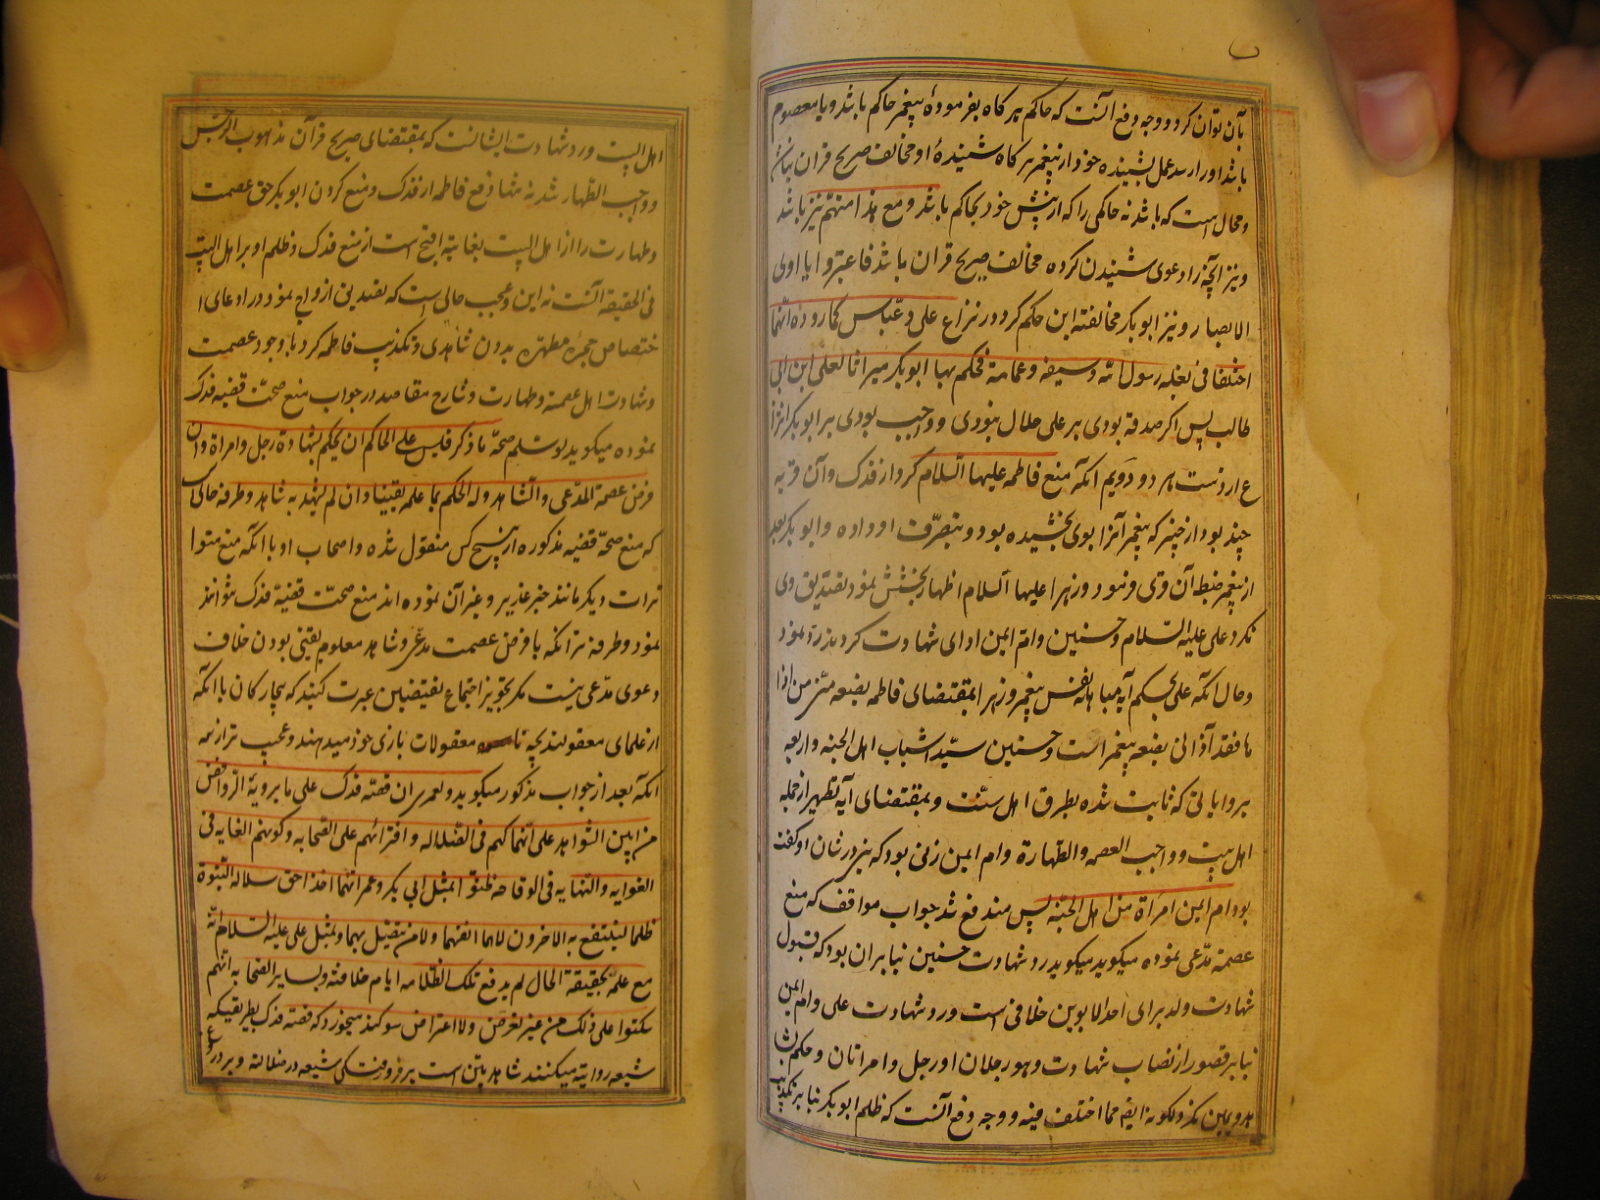 بآن توان کرد و وجه دفع آنست که حاکم هرکاه بفرمودهٔ پیغمبر حاکم باشد و یا معصوم
باشد اورا رسد عمل بشنیده خود از پیغمبر هرکاه شنیدهٔ او مخالف صریح قران
و محال است که باشد نه حاکمی را که از پیش خود حاکم باشد و مع هذا متهم نیز باشد
و نیز آنچه را دعوی شنیدن کرده مخالف صریح قران باشد فاعتبروا یا اولی
الابصار و نیز ابوبکر مخالفته این حکم کرد در نزاع علی و عباس کما روده انهما
اختلفا فی بغله رسول الله و سیفه و عمامة فحکم بها ابوبکر میراثا لعلی ابن ابی
طالب پس اکر صدقه بودی بر علی حلال نبودی و واجب بودی بر ابوبکر انتزا
ع از دست هر دو دویم آنکه منع فاطمه علیها السلام کرد از فدک و آن قریه
چند بود از خیبر که پیغمبر آنرا بوی بخشیده بود و بتصرف او داده و ابوبکر بعد
از پیغمبر ضبط آن قری فرمود و زهرا علیها السلام اظهار بخشش نمود تصدیق وی
نکرد علی علیه السلام و حسنین و ام ایمن ادای شهادت کردند رد نمود
و حال آنکه علی بحکم آیه مباهله نفس پیغمبر و زهرا بمقتضای فاطمه بضعه منی من اذا
ها فقد آذانی بضعه پیغمبر است و حسنین سیدا شباب اهل الجنه و اربعه
بروایاتی که ثابت شده بطرق اهل سنت و بمقتضای آیه تطهیر از جمله
اهل بیت و واجب العصمه والطهارة و ام ایمن زنی بود که پیغمبر در شان او کفته
بود ام ایمن امراة من اهل الجنه پس مندفع شد جواب مواقف که منع
عصمة مدعی نموده میکوید میکوید رد شهادت حسنین بنابران بود که قبول
شهادت ولد برای احد الابوین خلافی است و رد شهادت علی و ام ایمن
بنا بر قصور از نصاب شهادت و هو رجلان او رجل و امراتان و حکم
بیمین نکرد لکونه ایضا مما اختلف فیه و وجه دفع آنست که ظلم ابوبکر بنا بر تکذیب
اهل البیت و رد شهادت ایشانست که بمقتضای صریح قرآن مذهوب الرجس
و واجب الطهارتند نه تنها دفع فاطمه از فدک و منع کردن ابوبکر حق عصمت
و طهارت را از اهل البیت بغایة اقبح است از منع فدک و ظلم او بر اهل البیت
فی الحقیقة آنست نه این و عجب حالی است که تصدیق ازواج نمود در ادعای ا
ختصاص حجرهٔ مطهره بدون شاهدی و تکذیب فاطمه کرد با وجود عصمت
و شهادت اهل عصمة و طهارت و شارح مقاصد در جواب منع صحت قضیه فدک
نموده میکوید و لو سلم صحة ما ذکر فلیس علی الحاکم ان یحکم بشهادة رجل و امراة و ان
فرض عصمة المدعی و الشاهد و له الحکم بما علمه یقینا و ان لم یشهد به شاهد و طرفه حالی ا
که منع صحة قضیه مذکوره از هیچ کس منقول نشده و اصحاب او با آنکه منع متوا
ترات دیکر مانند خبر غدیر و غیر آن نموده اند منع صحت قضیه فدک نتوانند
نمود و طرفه تر آنکه با فرض عصمت مدعی و شاهد معلوم یقینی بودن خلاف
دعوی مدعی نیست مکر تجویز اجتماع نقیضین عبرت کنند که بیچارکان با آنکه
از علمای معقولند بچه معقولات بازی خود میدهند و عجب تر از همه
آنکه بعد از جواب مذکور میکوید و لعمری ان قصه فدک علی ما یرویه الروافض
من ابین الشواهد علی انهماکهم فی الضلاله و افترائهم علی الصحابه و کونهم الغایه فی
الغوایه و النهایه فی الوقاحه ظنوا بمثل ابی بکر و عمر انهما اخذا حق سلاله النبوة
ظلما لینتفع به الاخرون لا هما انفسهما و لا من یتصل بهما و بمثل علی علیه السلام انه
مع علمه بحقیقة الحال لم یدفع تلک الظلامه ایام خلافته و بسایر الصحابه انهم
سکتوا علی ذلک من غیر تعرض و لا اعتراض سوکند میخورد که قصه فدک بطریقیکه
شیعه روایة میکنند شاهد بین است بر فرو رفتکی شیعه در ضلالة و بر دروغ